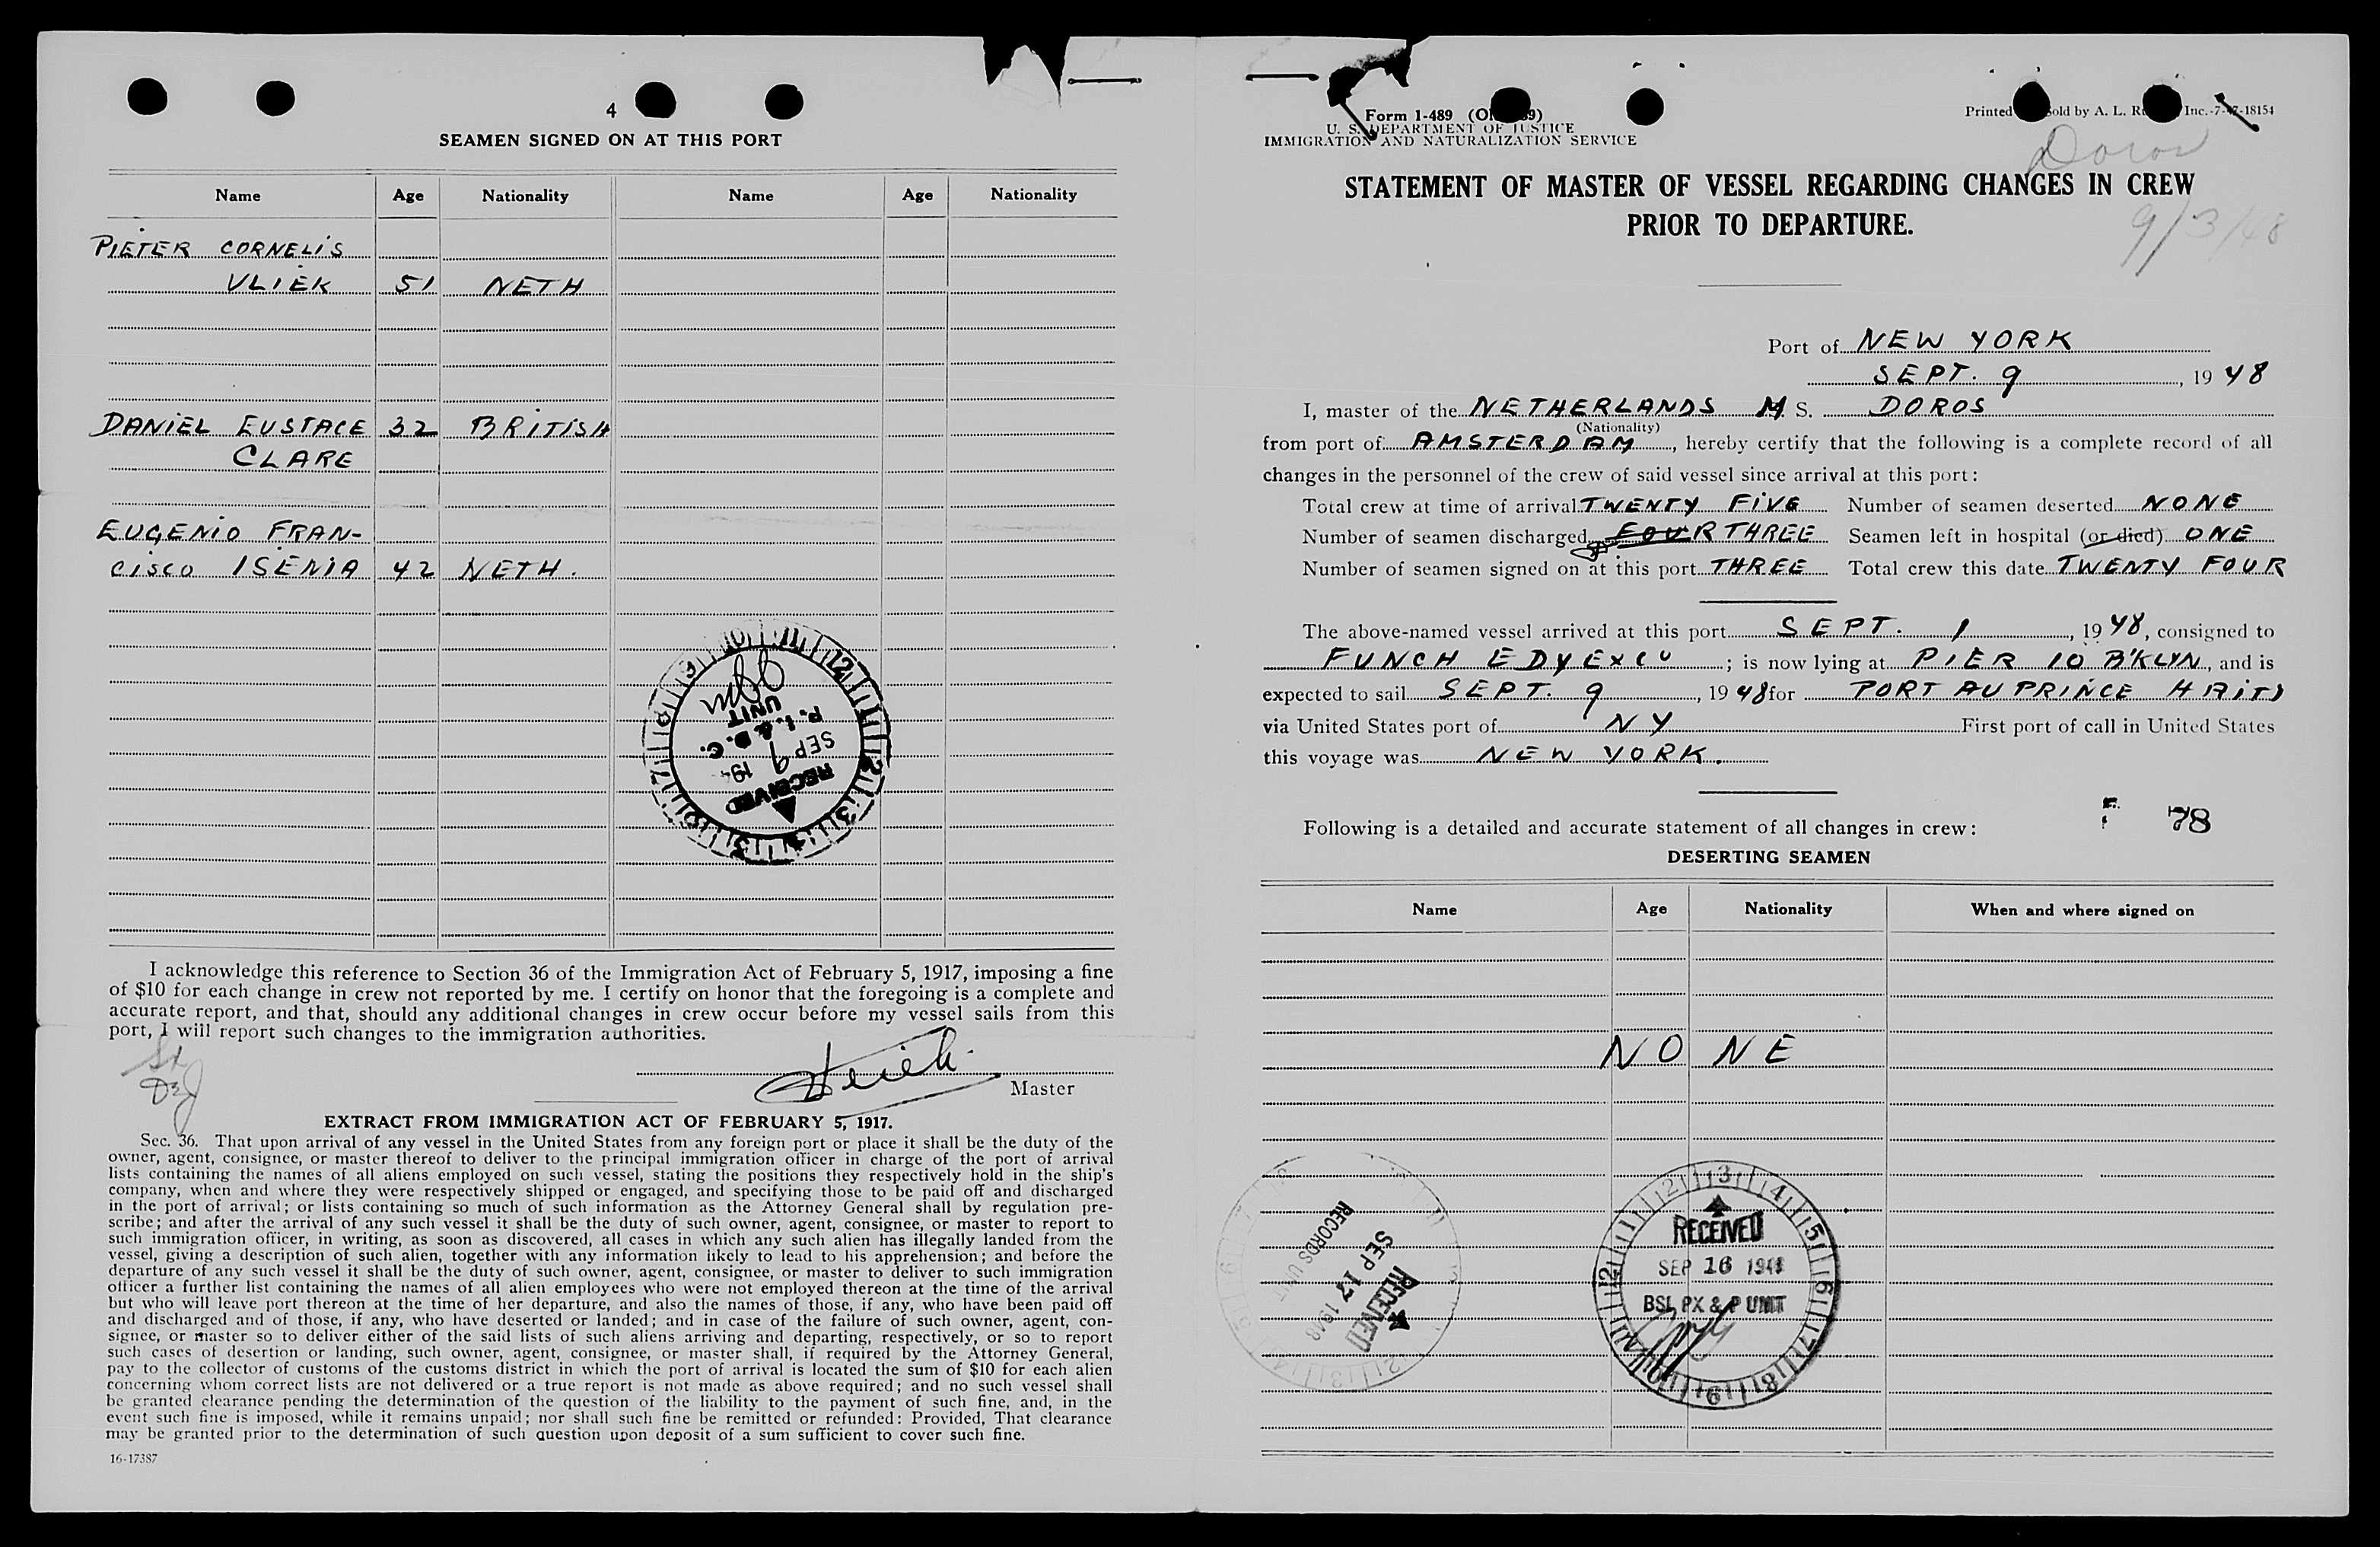 4
SEAMEN SIGNED ON AT THIS PORT
Name Age Nationality Name Age Nationality
PIETER CORNELIS
VLIEK 51 NETH
DANIEL EUSTACE 32 BRITISH
CLARE
EUGENIO FRAN-
CISCO ISENIA 42 NETH.
P. I. & D. C.
UNIT
SEP 9 194
RECEIVED
I acknowledge this reference to Section 36 of the Immigration Act of February 5, 1917, imposing a fine
of $10 for each change in crew not reported by me. I certify on honor that the foregoing is a complete and
accurate report, and that, should any additional changes in crew occur before my vessel sails from this
port, I will report such changes to the immigration authorities.
Master
EXTRACT FROM IMMIGRATION ACT OF FEBRUARY 5, 1917.
Sec. 36. That upon arrival of any vessel in the United States from any foreign port or place it shall be the duty of the
owner, agent, consignee, or master thereof to deliver to the principal immigration officer in charge of the port of arrival
lists containing the names of all aliens employed on such vessel, stating the positions they respectively hold in the ship's
company, when and where they were respectively shipped or engaged, and specifying those to be paid off and discharged
in the port of arrival; or lists containing so much of such information as the Attorney General shall by regulation pre-
scribe; and after the arrival of any such vessel it shall be the duty of such owner, agent, consignee, or master to report to
such immigration officer, in writing, as soon as discovered, all cases in which any such alien has illegally landed from the
vessel, giving a description of such alien, together with any information likely to lead to his apprehension; and before the
departure of any such vessel it shall be the duty of such owner, agent, consignee, or master to deliver to such immigration
officer a further list containing the names of all alien employees who were not employed thereon at the time of the arrival
but who will leave port thereon at the time of her departure, and also the names of those, if any, who have been paid off
and discharged and of those, if any, who have deserted or landed; and in case of the failure of such owner, agent, con-
signee, or master so to deliver either of the said lists of such aliens arriving and departing, respectively, or so to report
such cases of desertion or landing, such owner, agent, consignee, or master shall, if required by the Attorney General,
pay to the collector of customs of the customs district in which the port of arrival is located the sum of $10 for each alien
concerning whom correct lists are not delivered or a true report is not made as above required; and no such vessel shall
be granted clearance pending the determination of the question of the liability to the payment of such fine, and, in the
event such fine is imposed, while it remains unpaid; nor shall such fine be remitted or refunded: Provided, That clearance
may be granted prior to the determination of such question upon deposit of a sum sufficient to cover such fine.
16-17387
Form 1-489
Printed by A. L. Inc.
U. S. DEPARTMENT OF JUSTICE
IMMIGRATION AND NATURALIZATION SERVICE
Doros
STATEMENT OF MASTER OF VESSEL REGARDING CHANGES IN CREW
PRIOR TO DEPARTURE.
9/3/48
Port of NEW YORK
SEPT. 9, 1948
I, master of the NETHERLANDS M. S. DOROS
(Nationality)
from port of AMSTERDAM, hereby certify that the following is a complete record of all
changes in the personnel of the crew of said vessel since arrival at this port:
Total crew at time of arrival TWENTY FIVE Number of seamen deserted NONE
Number of seamen discharged FOUR THREE Seamen left in hospital (or died) ONE
Number of seamen signed on at this port THREE Total crew this date TWENTY FOUR
The above-named vessel arrived at this port SEPT. 1, 1948, consigned to
FUNCH EDYE & CO; is now lying at PIER 10 B'KLYN, and is
expected to sail SEPT. 9, 1948 for PORT AU PRINCE HAITI
via United States port of NY First port of call in United States
this voyage was NEW YORK.
F 78
Following is a detailed and accurate statement of all changes in crew:
DESERTING SEAMEN
Name Age Nationality When and where signed on
NONE
RECORDS UNIT
SEP 17 1948
RECEIVED
RECEIVED
SEP 16 1948
BSI, PX & P UNIT